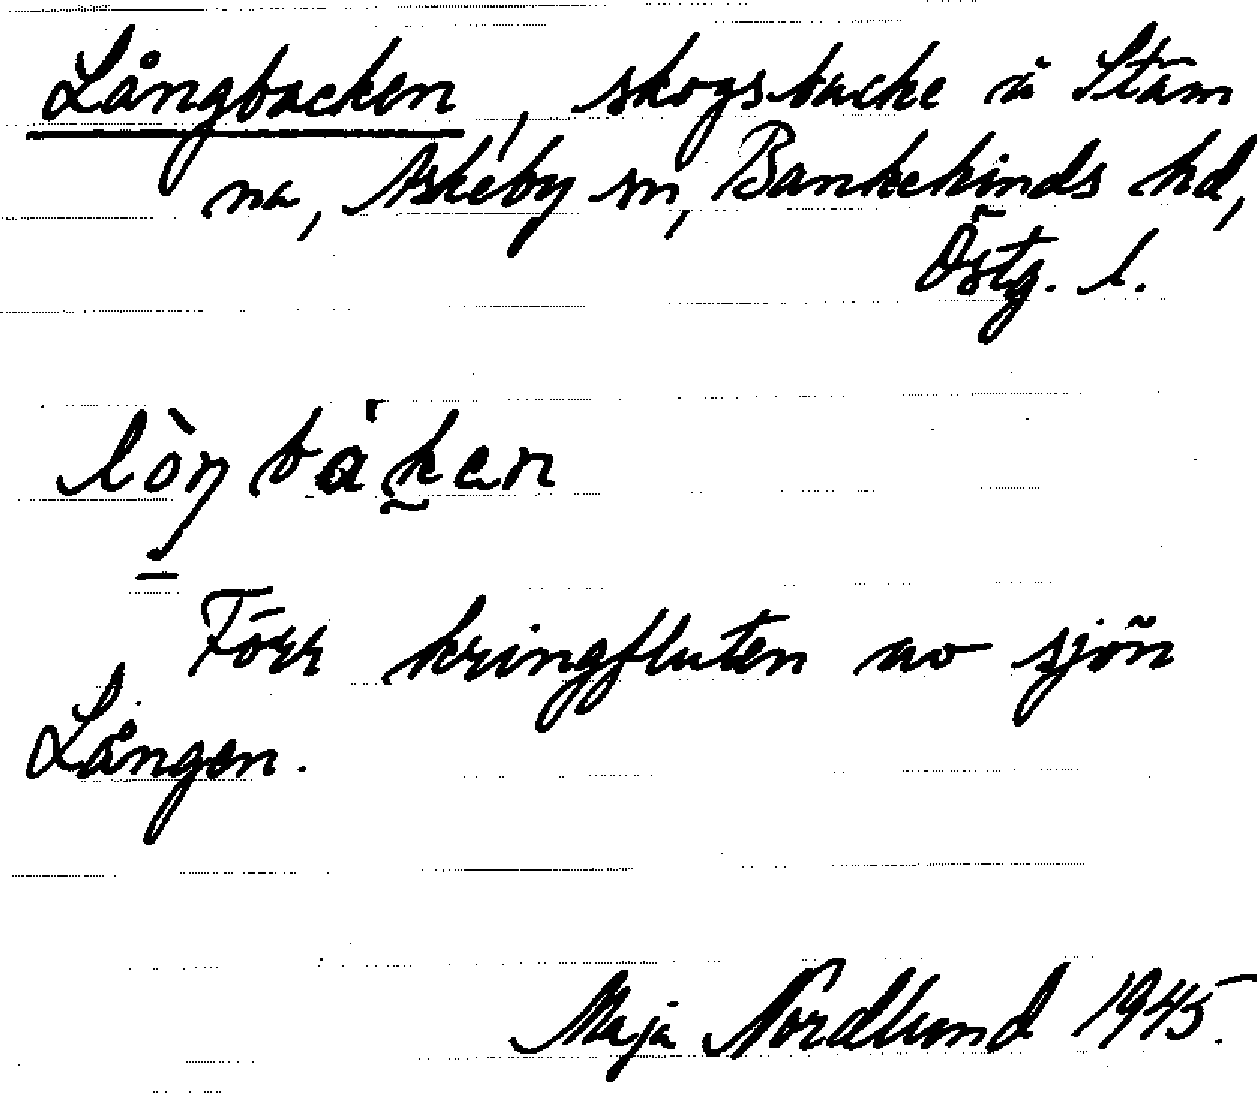 Långbacken, skogsbacke å Stäm
na, Askeby sn, Bankekinds hd,
Östg. l.
lòŋbáken
Förr kringfluten av sjön
Lången.
Maja Nordlund 1945.